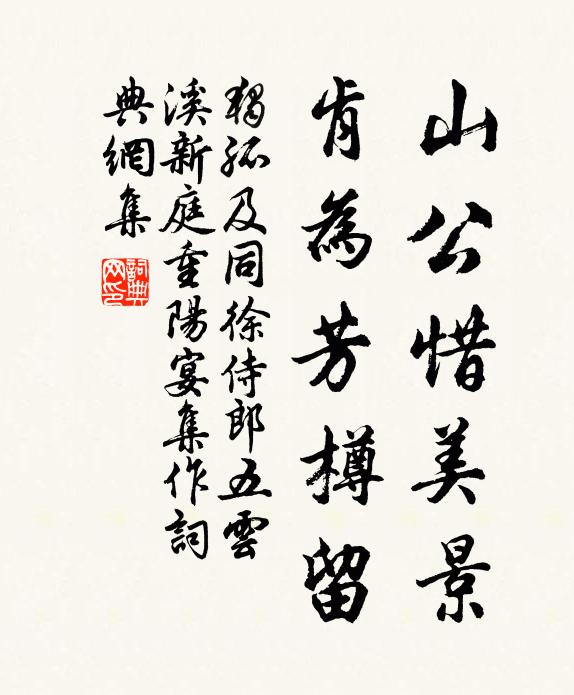 山公惜美景
肯為芳樽留
獨孤及同徐侍郎五雲
溪新庭重陽宴集作詞
典網集
詞典
网印